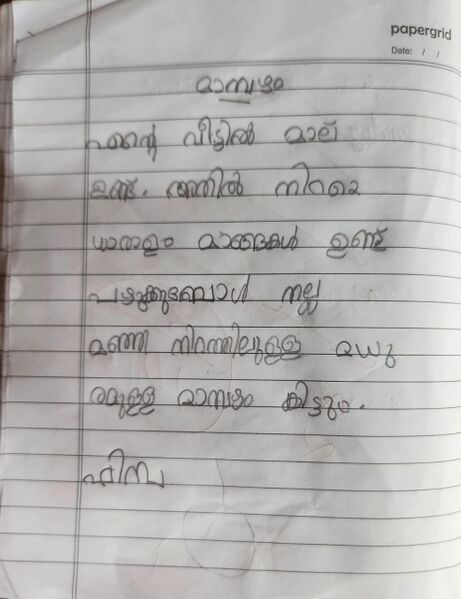 papergrid
Date: / /
മാമ്പഴം
എന്റെ വീട്ടിൽ മാവ്
ഉണ്ട്. അതിൽ നിറയെ
ധാരാളം മാങ്ങകൾ ഉണ്ട്
പഴുക്കുമ്പോൾ നല്ല
മഞ്ഞ നിറത്തിലുള്ള മധു
രമുള്ള മാമ്പഴം കിട്ടും.